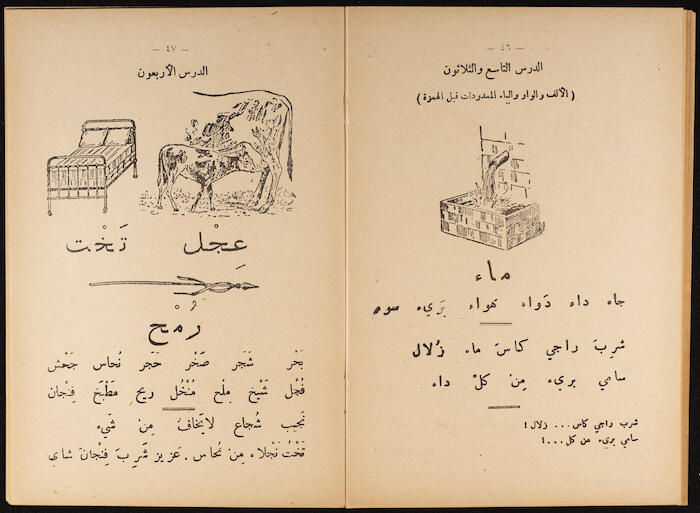 — ٤٦ —
الدرس التاسع والثلاثون
( الألف والواو والياء الممدودات قبل الهمزة )
ماء
جاء داء دَواء هَواء بَريء سوء
شربَ راجي كاسَ ماء زُلال
سامي بريء مِن كلّ داء
شرب راجي كاس ... زلال !
سامي بريء من كل ...!
— ٤٧ —
الدرس الأربعون
عِجْل تَخْت
رُمْح
بَحْر شَجَر صَخْر حَجَر نُحاس جَحْش
فُجْل شَيْخ مِلْح مُنْخُل ريح مَطْبَخ فِنْجان
نَجيب شُجاع لايَخافُ مِن شَيء
تَخْتُ نَجْلاء مِن نُحاس . عَزيز شَرِبَ فِنْجانَ شاي